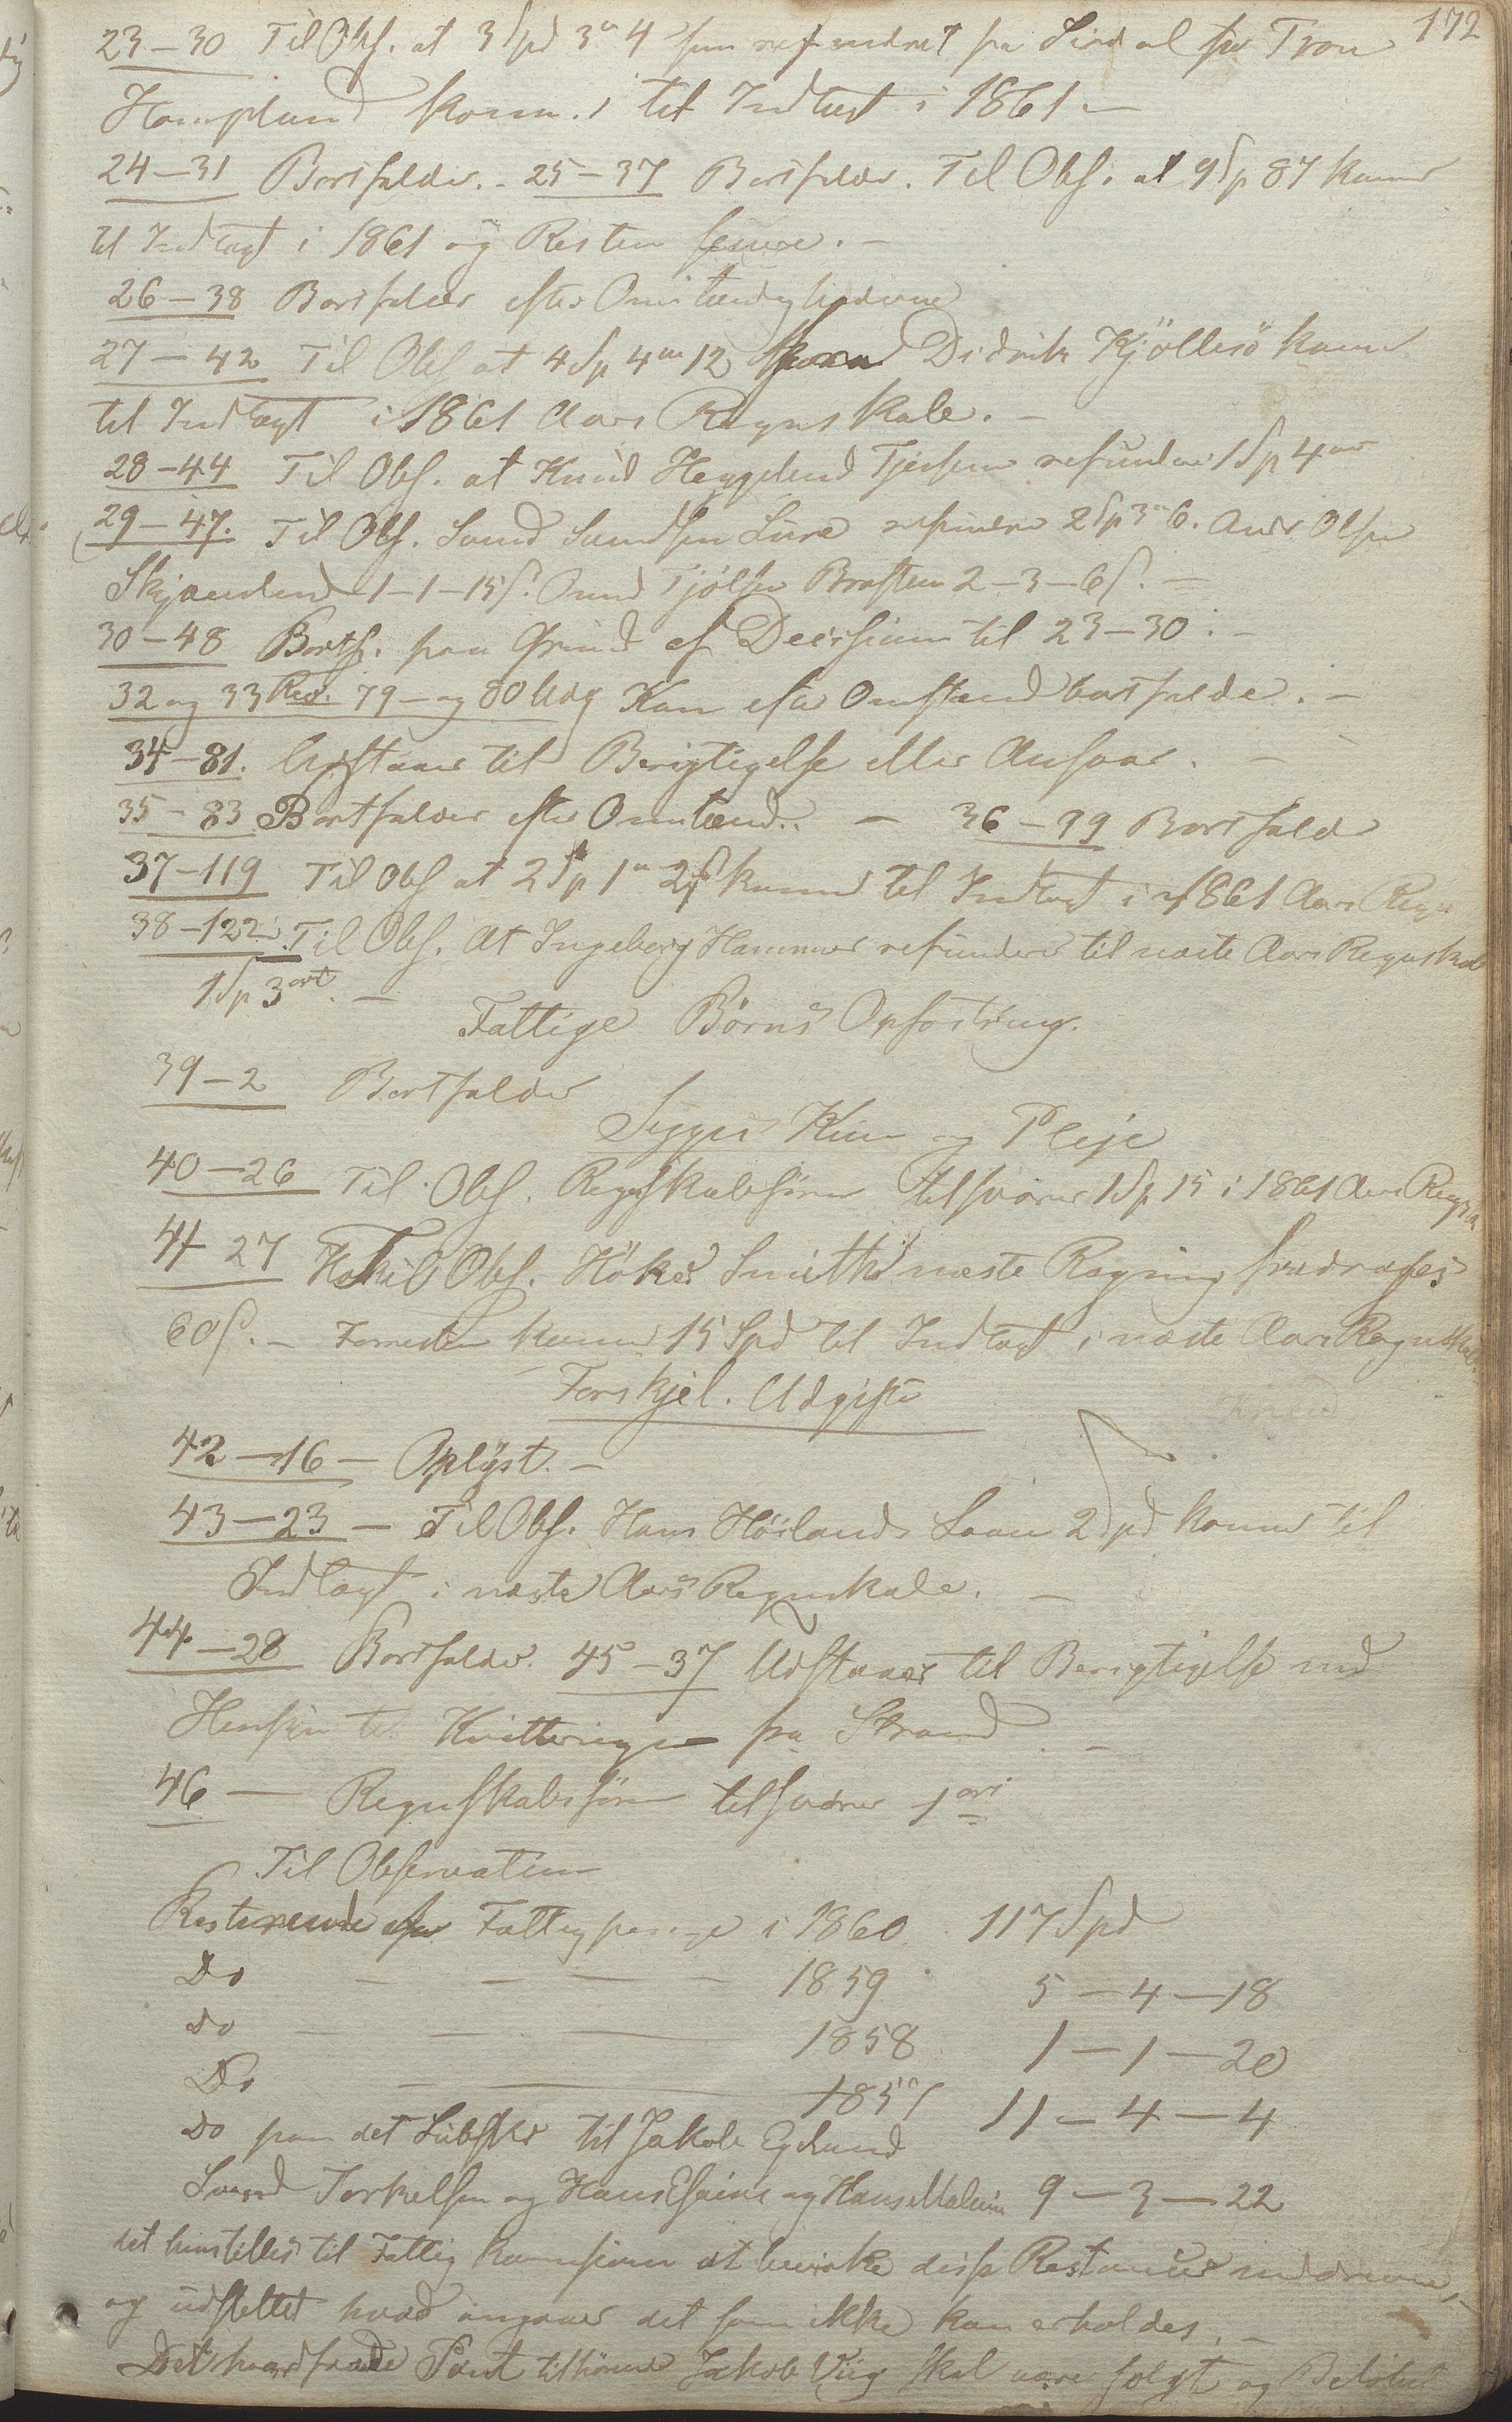 172
23–30 Til Obs. at 3 Spd 3 4 som refunderet fra Sirdal for Tron
Homplund komm. til Indtægt i 1861 –
24–31 Bortfalder. – 25–37 Bortfalder. Til Obs. at 9 Sp 87 kommer
til Indtægt i 1861 og Resten senere. –
26–38 Bortfalder efter Omstændighederne
27–42 Til Obs at 4 Sp 4 12 Didrik Kjöllesö kommer
til Indtægt i 1861 Aars Regnskab. –
28–44 Til Obs. at Knud Heggelund Tjersem refunderer 1 Sp 4 ort
29–47. Til Obs. Svend Svendsen Lura refunderer 2 Sp 3 6. Anders Olsen
Skjævelend 1–1–15 s. Onund Tjölsen Brasteen 2–3–6 s. –
30–48 Bortf. paa Grund af Decisionen til 23–30. –
32 og 33 Rev. 79– og 80 Udg Kan efter Omstænd bortfalde. –
34–81. Udstaaer til Berigtigelse eller Ansvar. –
35–83 Bortfalder efter Omstænd.. – 36–99 Bortfalder
37–119 Til Obs at 2 Sp 1 2 s kommer til Indtægt i 1861 Aars Regn
38–122 Til Obs. At Ingeborg Hammer refunderer til næste Aars Regnskab
1 Sp 3 ort. –
Fattige Börns Opfostring.
39–2 Bortfalder
Syges Kuur og Pleje
40–26 Til Obs. Regnskabsfören tilsvarer 1 Sp 15 i 1861 Aars Regnsk
41 27 Til Obs. Höker Smiths næste Regning fradrages
60 s. – Forresten kommer 15 Spd til Indtægt i næste Aars Regnskab
Forskjel. Udgifter
42–16 – Oplyst. –
43–23 – Til Obs. Hans Höilands Laan 2 Spd kommer til
Indtægt i næste Aars Regnskab. –
44–28 Bortfalder. 45–37 Udstaaer til Berigtigelse med
Hensyn til Kvitteringen fra Strand. –
46 – Regnskabsfören tilsvarer 1 ort
Til Observation
Resterende af Fattigpenge i 1860 117 Spd
Do – – – – 1859 5–4–18
do – – – 1858 1–1–20
Do – – 1857 11–4–4
do paa det Lübske til Jakob Egelund
Svend Torkelsen og Hans Esaine og Hans Malmin 9–3–22
det henstilles til Fattig kommisionen at bevirke disse Restancer inddrevne,
og udslettet hvad angaaer det som ikke kan erholdes. –
Det Pant tilhörende Jakob Viig skal være solgt og Belöbet